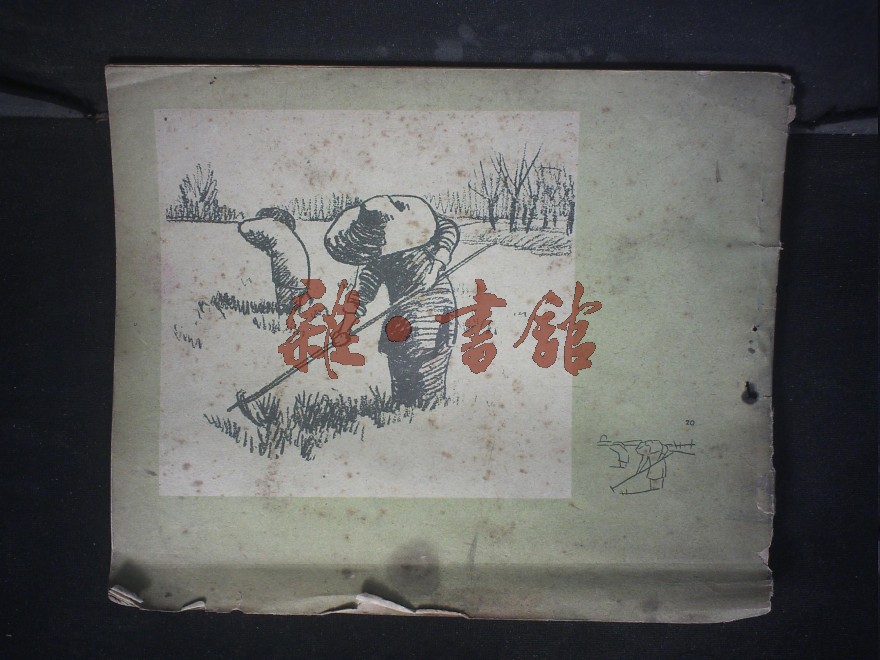 雜·書館
20